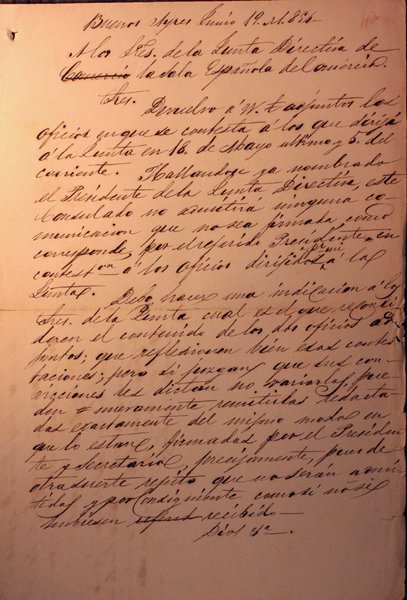 Buenos Ayres Junio 19 de 1854
A los Sres. de la Junta Directiva de
Comercio la Sala Española del comércio.
Sres.
Devuelvo á V. S. adjuntos los
oficios en que se contesta á los que dirijí
á la Junta en 16. de Mayo ultimo y 5. del
corriente. Hallandose ya nombrado
el Presidente de la Junta Directiva, este
Consulado no admitirá ninguna co-
municacion que no sea firmada como
corresponde, por el referido Presidente en
conteston á los oficios dirijidos á la
Junta.
Debo hacer una indicacion á los
Sres. de la Junta cual es el que
el contenido de los dos oficios ad-
juntos; que reflexionen bien esas contes-
taciones; pero si juzgan que sus con-
vicciones les dictan no variarlas, pue-
den nuevamente remitirlas redacta-
das exactamente del mismo modo en
que lo estan, firmadas por el Presiden-
te y Secretario, precisamente, pues de
otra suerte repito que no serán admi-
tidas y por consiguiente como si no se
hubiesen recibido
Dios &a.